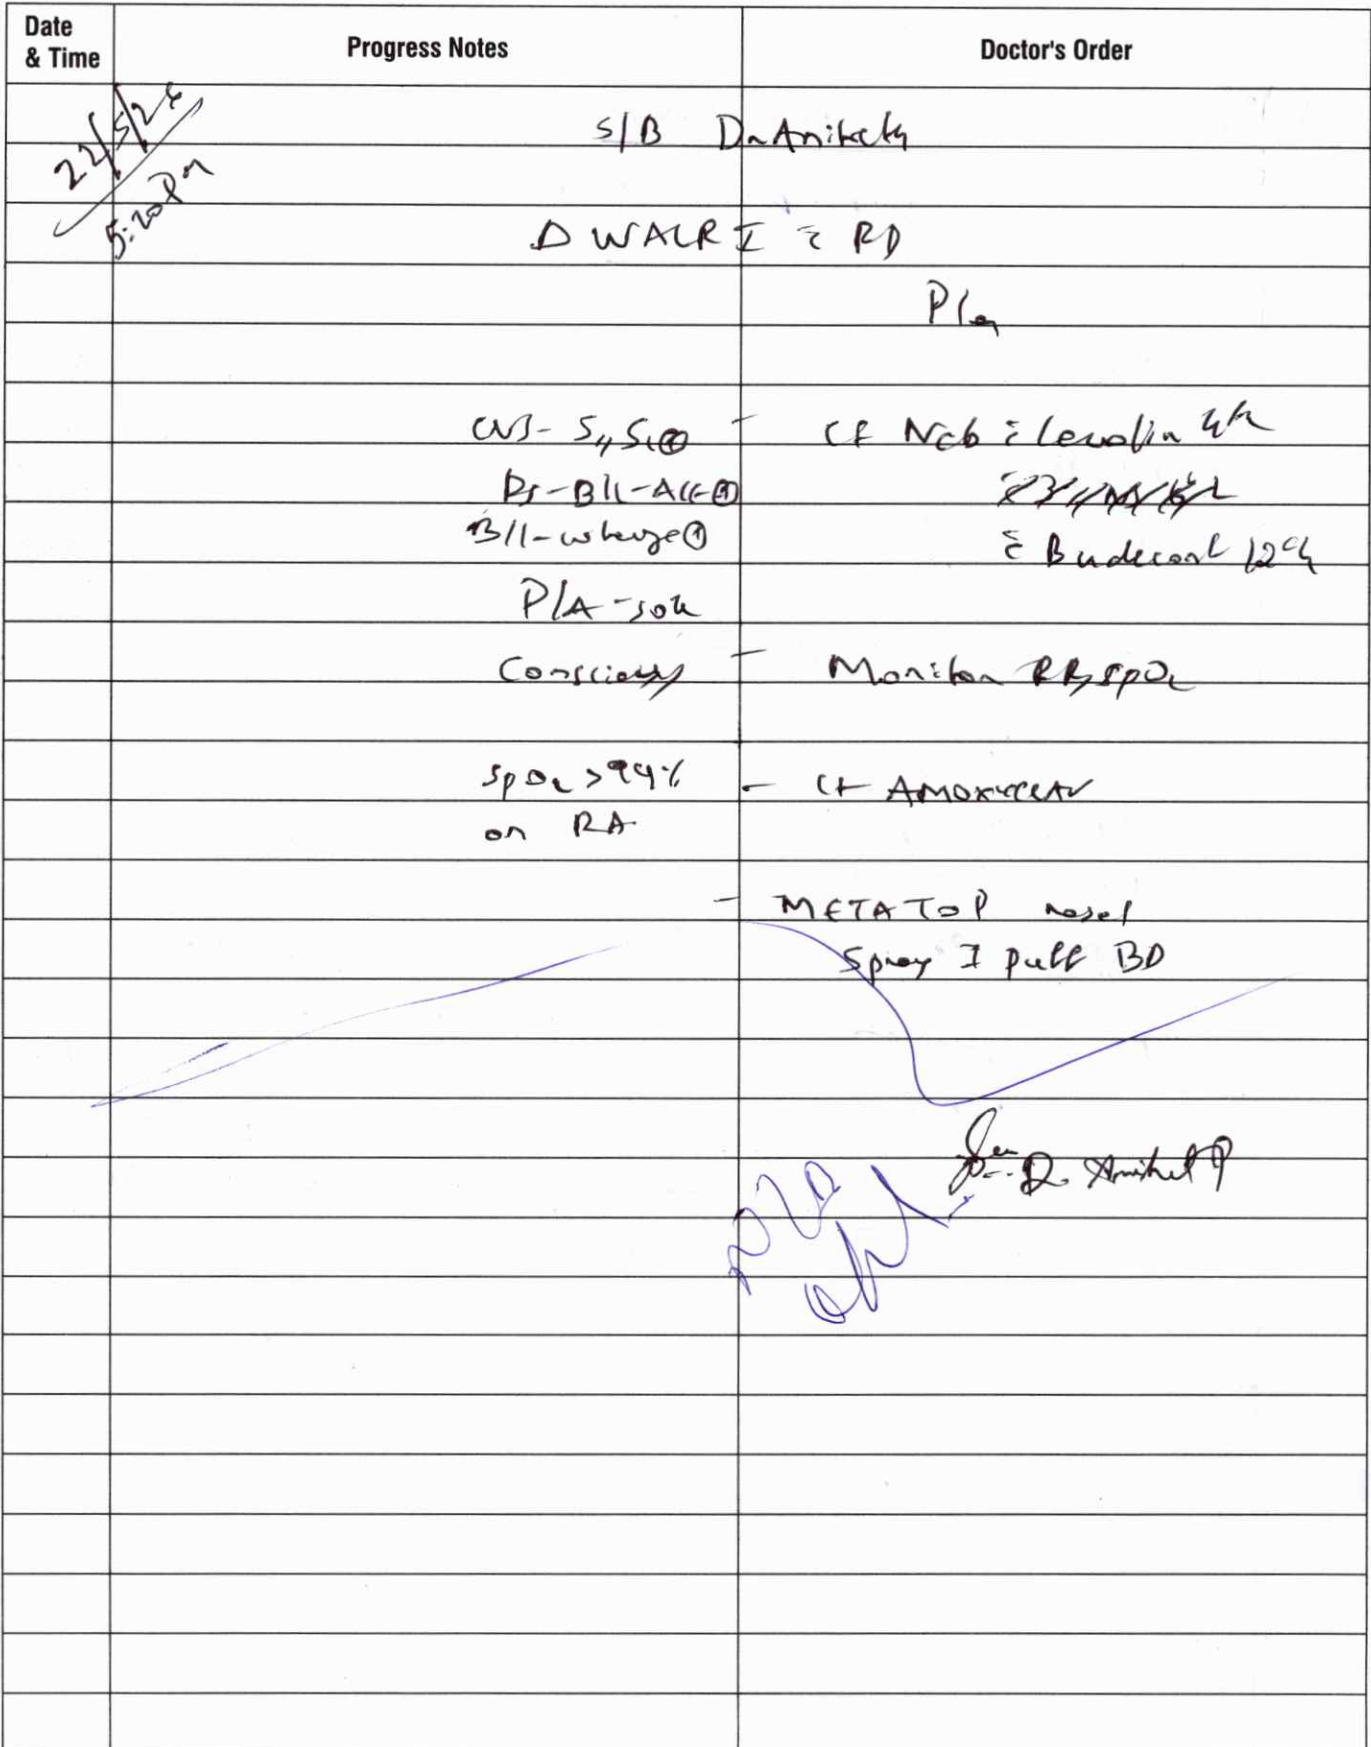 Date & Time
Progress Notes
Doctor's Order
22/5/24
5:20 Pm
S/B Dr Aniket
Δ WALRI c̄ RD
Plan
CVS - S1, S2 ⊕
- Ct Neb c̄ Levolin
RS - B/L - AE ⊕
B/L - wheeze ⊕
c̄ Budecort 12h
P/A - soft
Conscious
- Monitor RR, SpO2
SpO2 > 94%
on RA
- Ct AMOXYCLAV
- METATOP nasal
Spray I puff BD
Dr. Aniket P